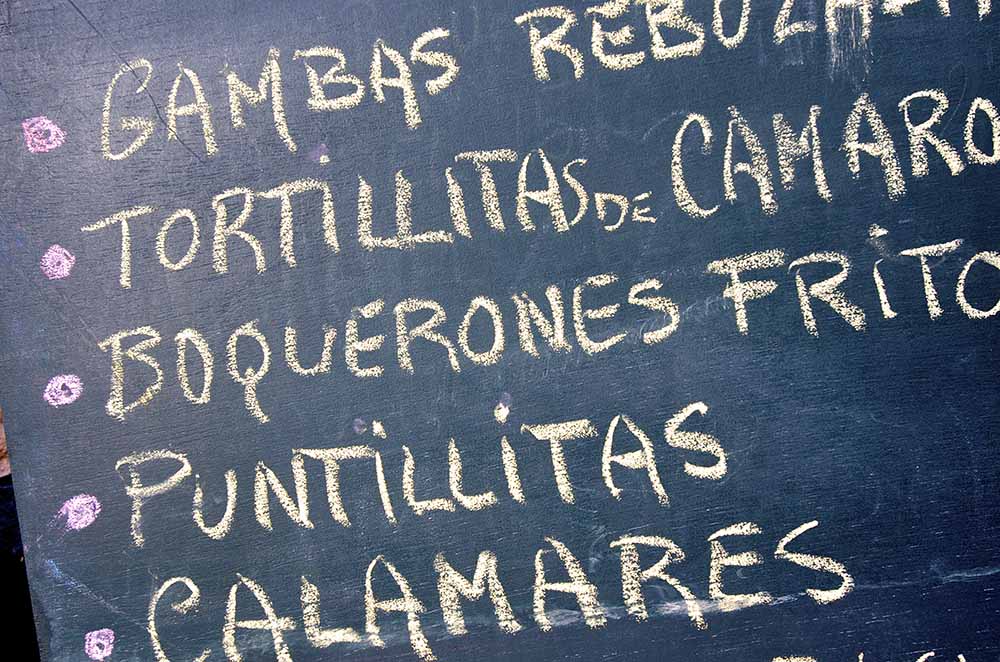 GAMBAS REBOZA
TORTILLITAS DE CAMARO
BOQUERONES FRITO
PUNTILLITAS
CALAMARES